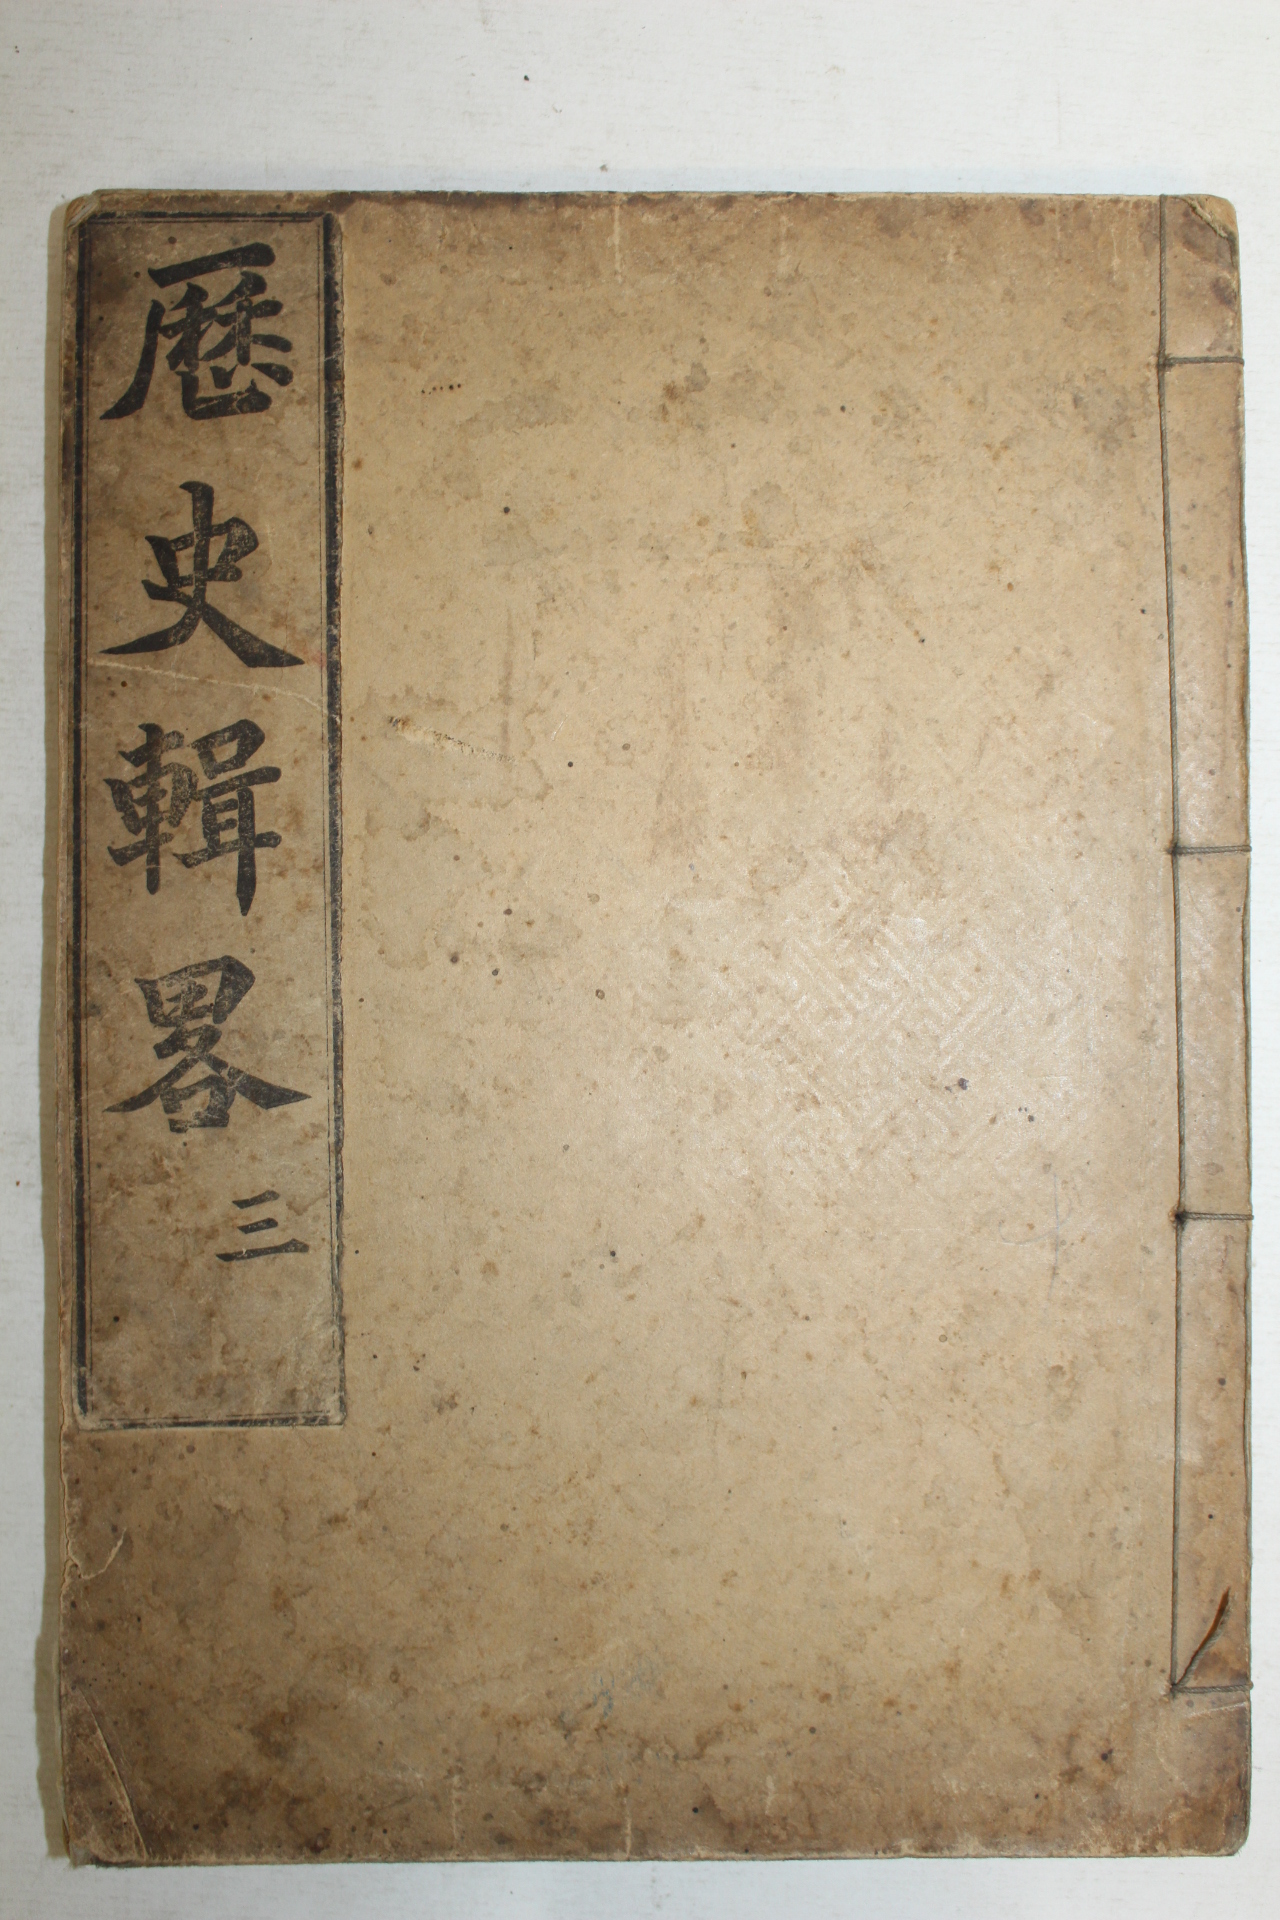 歷史輯畧 三